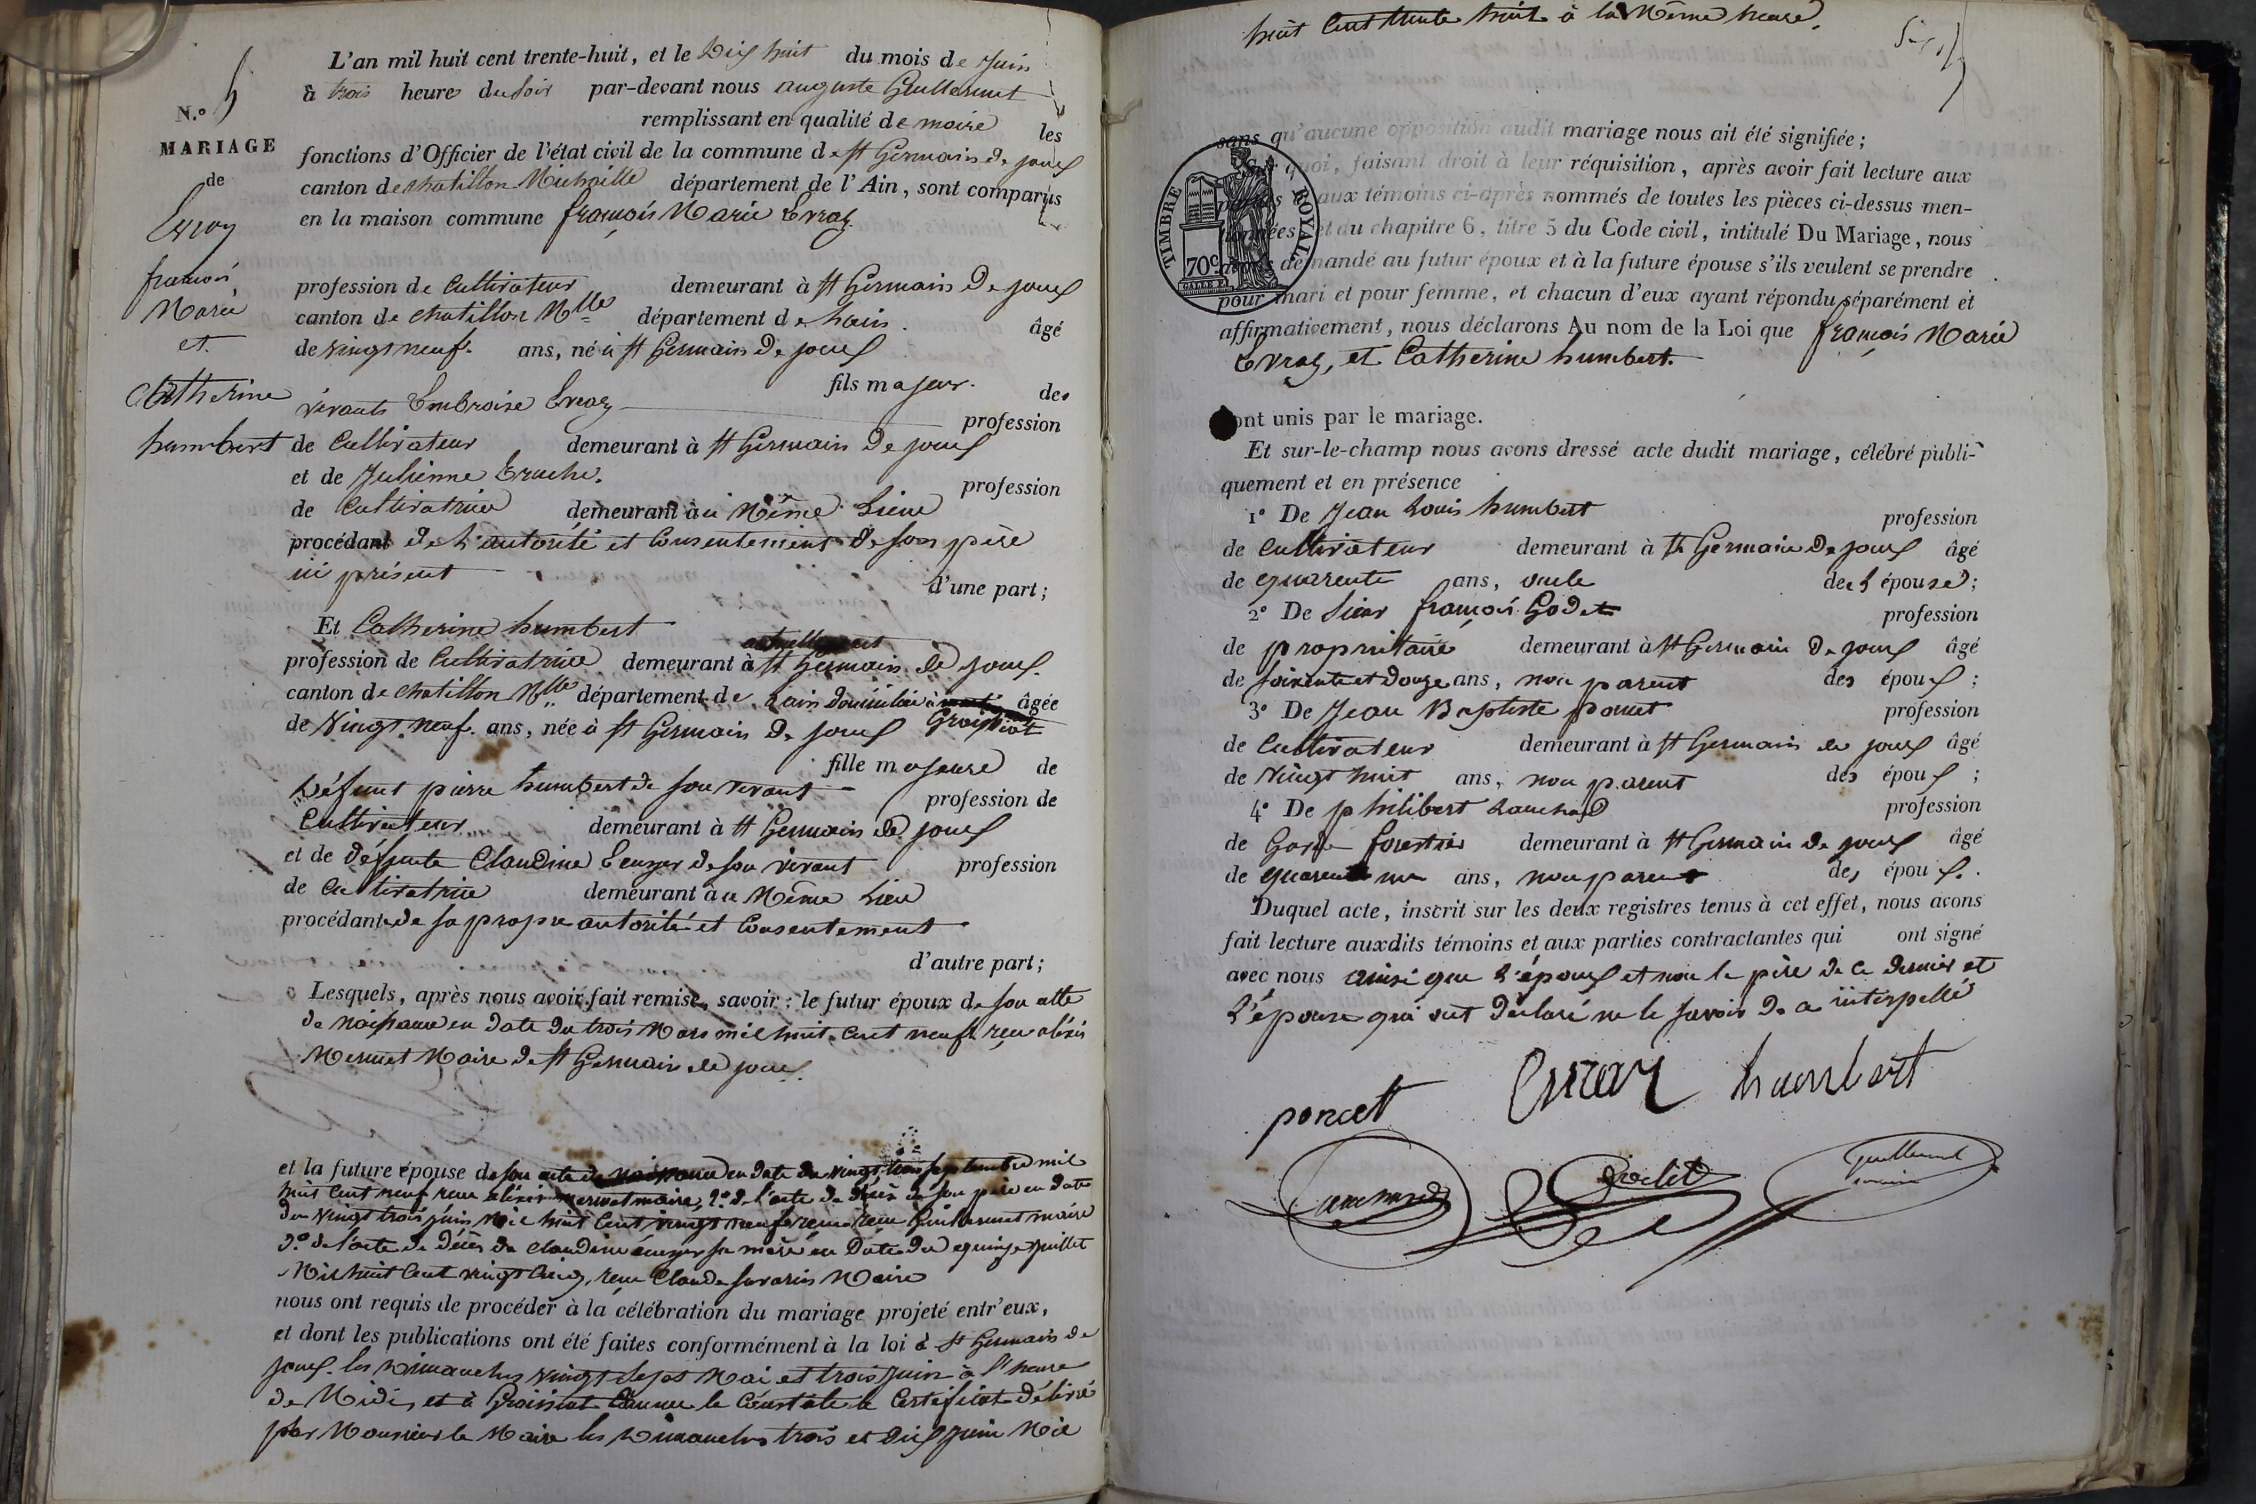 N.° 5
MARIAGE
de
Evray
françois
Marie
et
Catherine
humbert
L'an mil huit cent trente-huit, et le Dix huit du mois de Juin
à trois heures du soir par-devant nous auguste Guillermet
remplissant en qualité de maire les
fonctions d'Officier de l'état civil de la commune de st Germain de joux
canton de chatillon Michaille département de l'Ain, sont comparus
en la maison commune françois Marie Evray
profession de Cultivateur demeurant à st Germain De joux
canton de chatillon Mlle département de Lain âgé
de vingt neuf ans, né à st Germain De joux
fils majeur des
vivants Embroise Evray profession
de Cultivateur demeurant à st Germain De joux
et de Julienne profession
de Cultivatrice demeurant à u Même Lieu
procédant de L'autorité et Consentement de son père
ici présent d'une part;
Et Catherine humbert
profession de Cultivatrice demeurant à st Germain de joux
canton de chatillon Mlle département de Lain domiciliée à âgée
de Vingt neuf ans, née à st Germain De joux Groissiat
fille majeure de
Défunt pierre humbert de son vivant profession de
Cultivateur demeurant à st Germain de joux
et de défunte Claudine de son vivant profession
de Cultivatrice demeurant à u Même Lieu
procédant de sa propre autorité et Consentement
d'autre part;
Lesquels, après nous avoir fait remise, savoir : le futur époux de son acte
de naissance en date du trois Mars mil huit cent neuf reçu aléxis
Mermet Maire de st Germain de joux.
et la future épouse de son acte de naissance en date du vingt trois septembre mil
huit Cent neuf reçu aléxis mermet maire, 2.° de l'acte de décès de son père en date
du vingt trois juin Mil huit Cent vingt neuf reçu Guillermet maire
3.° de l'acte de décès de Claudine sa mère en Date du quinze juillet
Mil huit Cent vingt Cinq, reçu Claude savarin Maire
nous ont requis de procéder à la célébration du mariage projeté entr'eux,
et dont les publications ont été faites conformément à la loi à st Germain de
joux les Dimanches vingt sept Mai et trois juin à l'heure
de Midi, et à Groissiat Comme le Constate le Certificat délivré
par Monsieur le Maire les Dimanches trois et Dix juin Mil
huit Cent trente huit à la Même heure.
sans qu'aucune opposition audit mariage nous ait été signifiée;
Sur quoi, faisant droit à leur réquisition, après avoir fait lecture aux
parties et aux témoins ci-après nommés de toutes les pièces ci-dessus men-
tionnées, et du chapitre 6, titre 5 du Code civil, intitulé Du Mariage, nous
avons demandé au futur époux et à la future épouse s'ils veulent se prendre
pour mari et pour femme, et chacun d'eux ayant répondu séparément et
affirmativement, nous déclarons Au nom de la Loi que françois Marie
Evray, et Catherine humbert.
TIMBRE ROYAL
70c
sont unis par le mariage.
Et sur-le-champ nous avons dressé acte dudit mariage, célébré publi-
quement et en présence
1° De Jean Louis humbert profession
de Cultivateur demeurant à st Germain De joux âgé
de quarente ans, oncle de L épouse;
2° De Sieur françois Godet profession
de propriétaire demeurant à st Germain De joux âgé
de soixente et Douze ans, non parent des époux;
3° De Jean Baptiste poncet profession
de Cultivateur demeurant à st Germain de joux âgé
de Vingt huit ans, non parent des époux;
4° De philibert profession
de Garde forestier demeurant à st Germain de joux âgé
de quarente un ans, non parent des époux.
Duquel acte, inscrit sur les deux registres tenus à cet effet, nous avons
fait lecture auxdits témoins et aux parties contractantes qui ont signé
avec nous ainsi que L'époux et non le père de ce dernier et
L'épouse qui ont Déclaré ne le savoir de ce interpellé
poncet Evray humbert
Godet Guillermet
maire